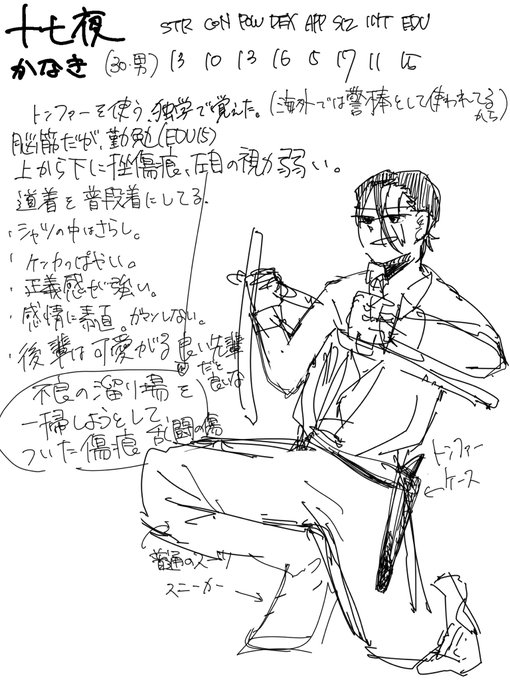 十七夜
STR CON POW DEX APP SIZ INT EDU
かなき (30・男) 13 10 13 16 5 17 11 15
トンファーを使う、独学で覚えた。(海外では警棒として使われてるから)
脳筋だが、勤勉(EDU15)
上から下に挫傷痕、左目の視力弱い。
道着を普段着にしてる。
・シャツの中はさらし。
・ケンカっぱやい。
・正義感が強い。
・感情に素直。ガマンしない。
・後輩は可愛がる良い先輩
だと良いな
不良の溜り場を
一掃しようとして
ついた傷痕 乱闘の傷
トンファー
ケース
普通の
スニーカー